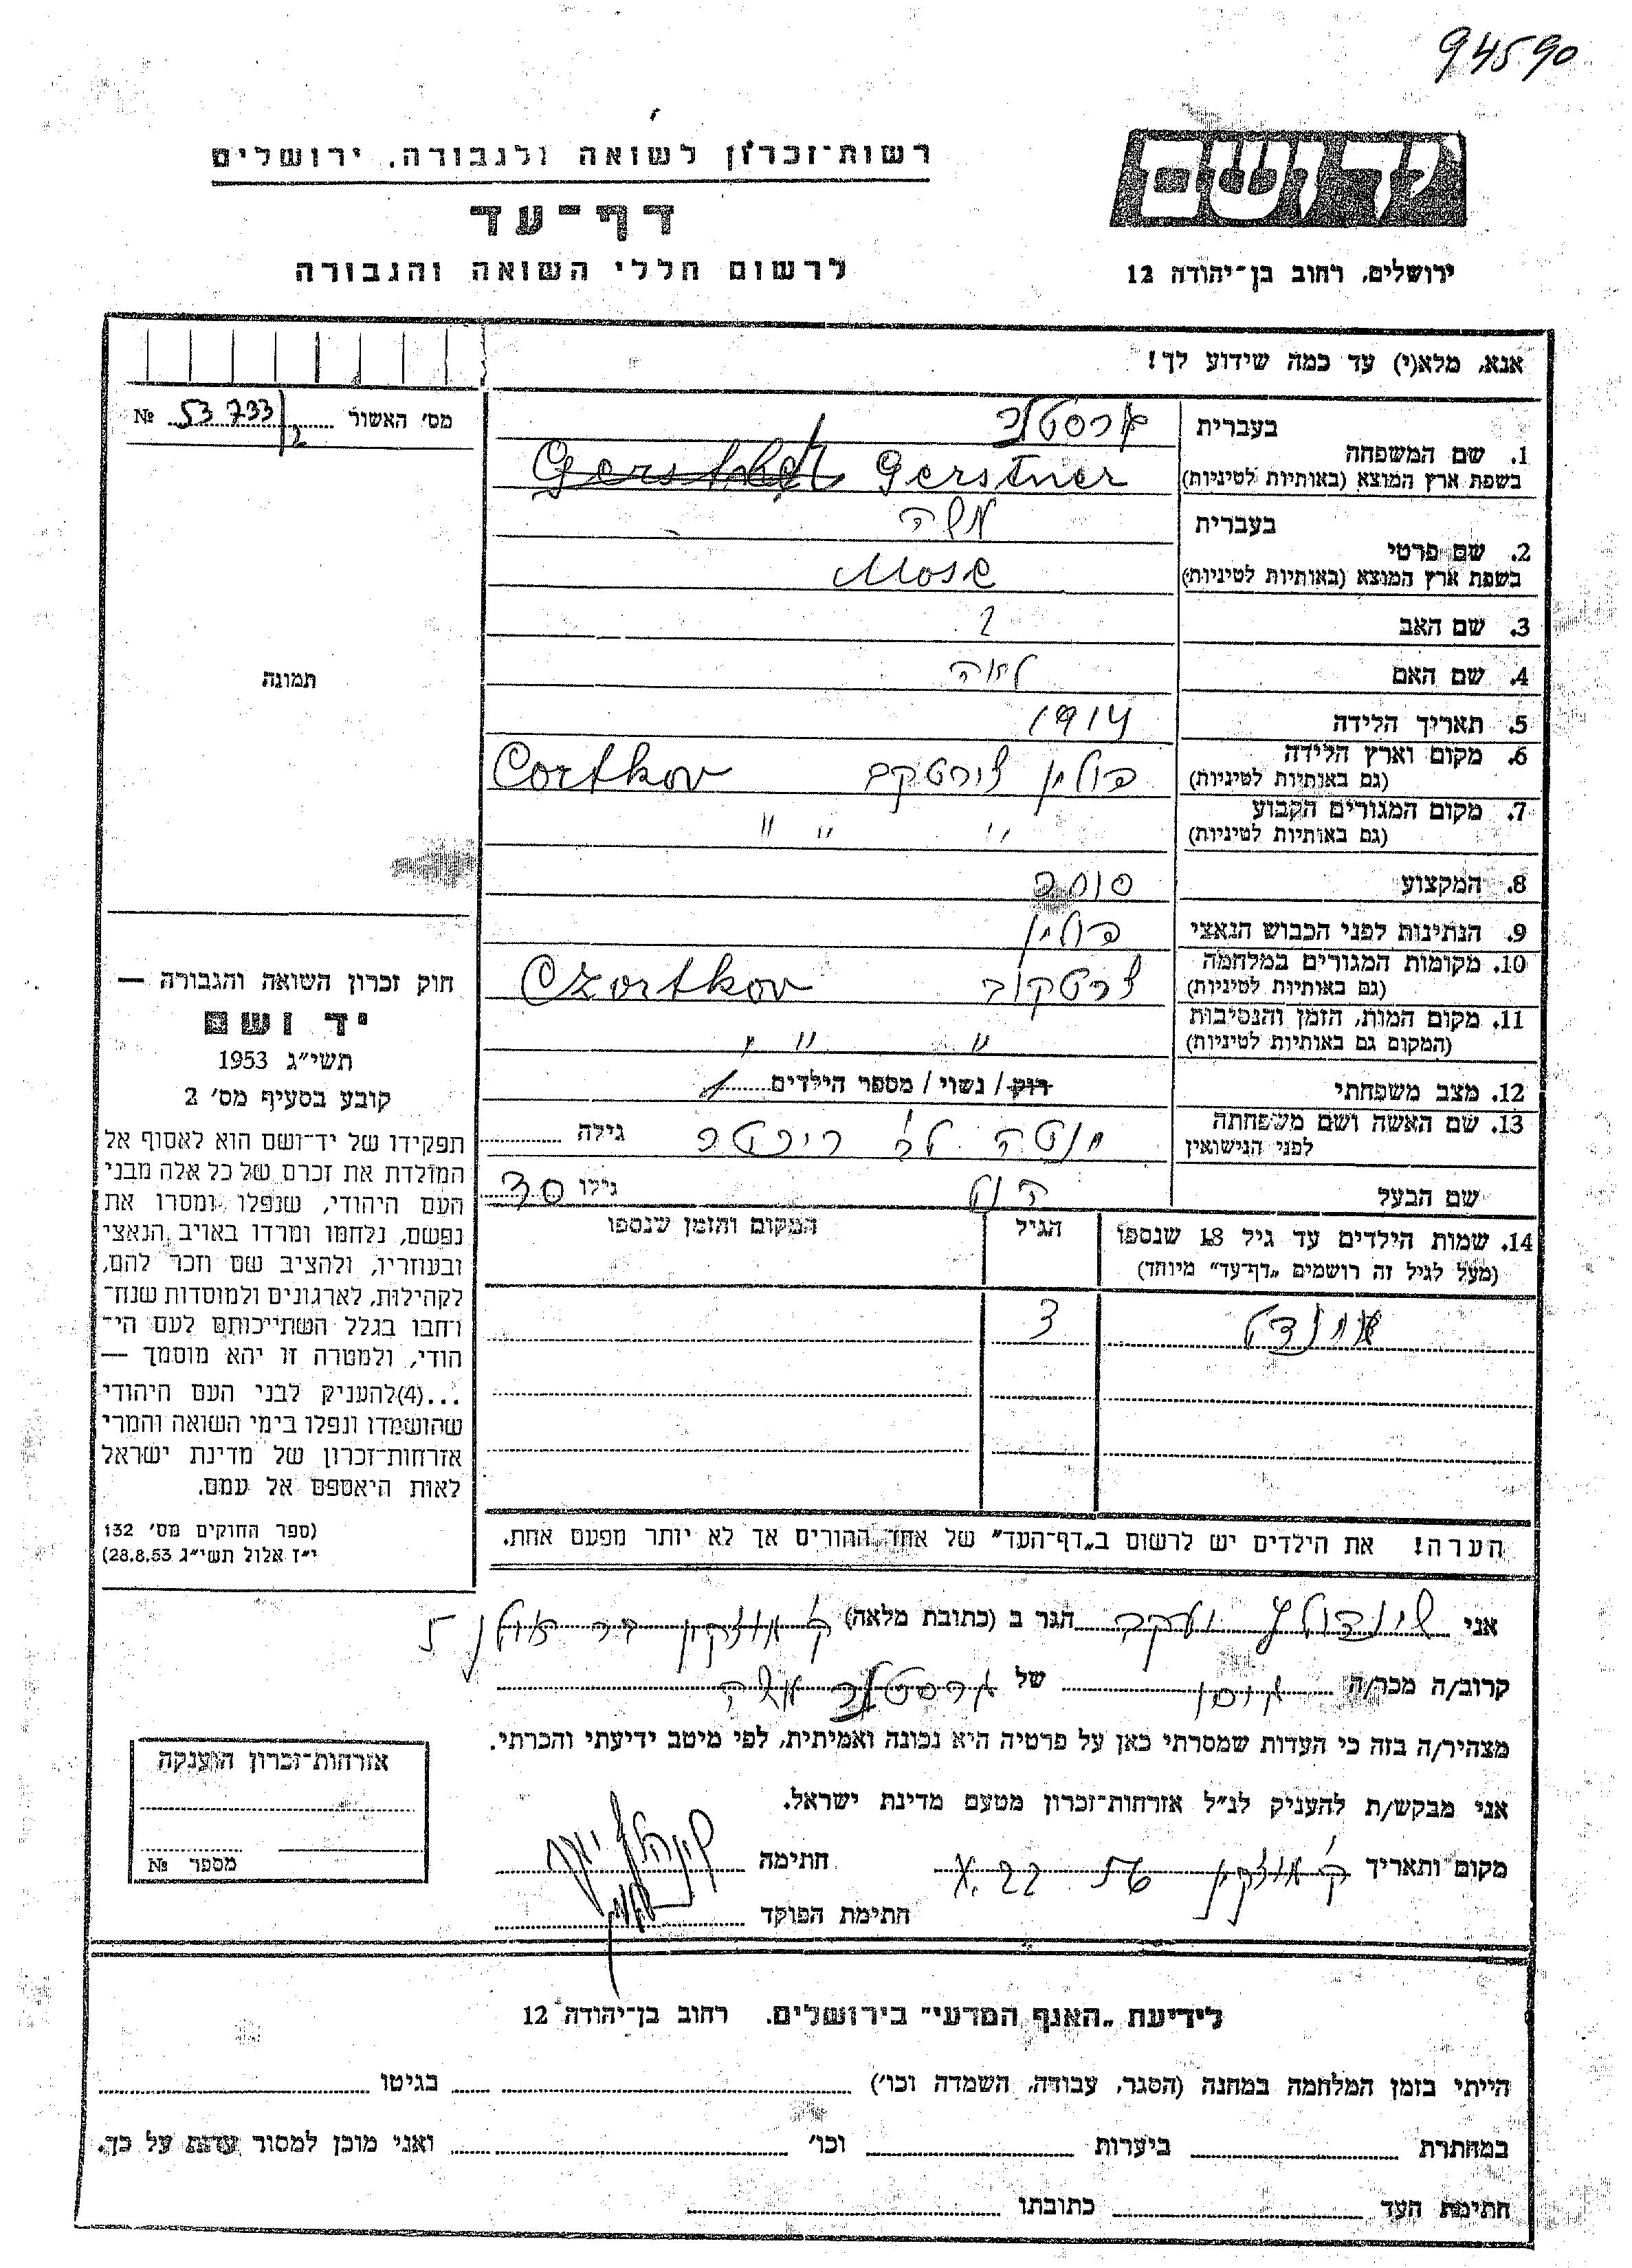 94590
יד ושם
רשות־זכרון לשואה ולגבורה, ירושלים
דף־עד
לרשום חללי השואה והגבורה
ירושלים, רחוב בן־יהודה 12
אנא, מלא(י) עד כמה שידוע לך!
מס׳ האשור 53733/2 №
1. שם המשפחה
בעברית גרסטנר
בשפת ארץ המוצא (באותיות לטיניות) Gerstner
2. שם פרטי
בעברית משה
בשפת ארץ המוצא (באותיות לטיניות) Mose
3. שם האב ?
4. שם האם חוה
5. תאריך הלידה 1914
6. מקום וארץ הלידה פולין צורטקב Cortkov
(גם באותיות לטיניות)
7. מקום המגורים הקבוע " " "
(גם באותיות לטיניות)
8. המקצוע סוחר
9. הנתינות לפני הכבוש הנאצי פולין
10. מקומות המגורים במלחמה צרטקוב Czortkov
(גם באותיות לטיניות)
11. מקום המות, הזמן והנסיבות " " "
(המקום גם באותיות לטיניות)
12. מצב משפחתי רוק / נשוי / מספר הילדים 1
13. שם האשה ושם משפחתה
לפני הנישואין גילה
שם הבעל גילו 30
14. שמות הילדים עד גיל 18 שנספו
(מעל לגיל זה רושמים „דף־עד" מיוחד)
הגיל
המקום והזמן שנספו
3
הערה! את הילדים יש לרשום ב„דף־העד" של אחד ההורים אך לא יותר מפעם אחת.
תמונה
חוק זכרון השואה והגבורה —
יד ושם
תשי״ג 1953
קובע בסעיף מס׳ 2
תפקידו של יד־ושם הוא לאסוף אל
המולדת את זכרם של כל אלה מבני
העם היהודי, שנפלו ומסרו את
נפשם, נלחמו ומרדו באויב הנאצי
ובעוזריו, ולהציב שם וזכר להם,
לקהילות, לארגונים ולמוסדות שנח־
רחבו בגלל השתייכותם לעם הי־
הודי, ולמטרה זו יהא מוסמך —
...(4)להעניק לבני העם היהודי
שהושמדו ונפלו בימי השואה והמרי
אזרחות־זכרון של מדינת ישראל
לאות היאספם אל עמם.
(ספר החוקים מס׳ 132
י״ז אלול תשי״ג 28.8.53)
אני יעקב הגר ב (כתובת מלאה) ק מוצקין
קרוב/ה מכר/ה גיסו של גרסטנר משה
מצהיר/ה בזה כי העדות שמסרתי כאן על פרטיה היא נכונה ואמיתית, לפי מיטב ידיעתי והכרתי.
אני מבקש/ת להעניק לנ״ל אזרחות־זכרון מטעם מדינת ישראל.
מקום ותאריך ק מוצקין חתימה
חתימת הפוקד
אזרחות־זכרון הוענקה
מספר №
לידיעת „האגף המדעי" בירושלים. רחוב בן־יהודה 12
הייתי בזמן המלחמה במחנה (הסגר, עבודה, השמדה וכו׳) בגיטו
במחתרת ביערות וכו׳ ואני מוכן למסור עדות על כך.
חתימת העד כתובתו